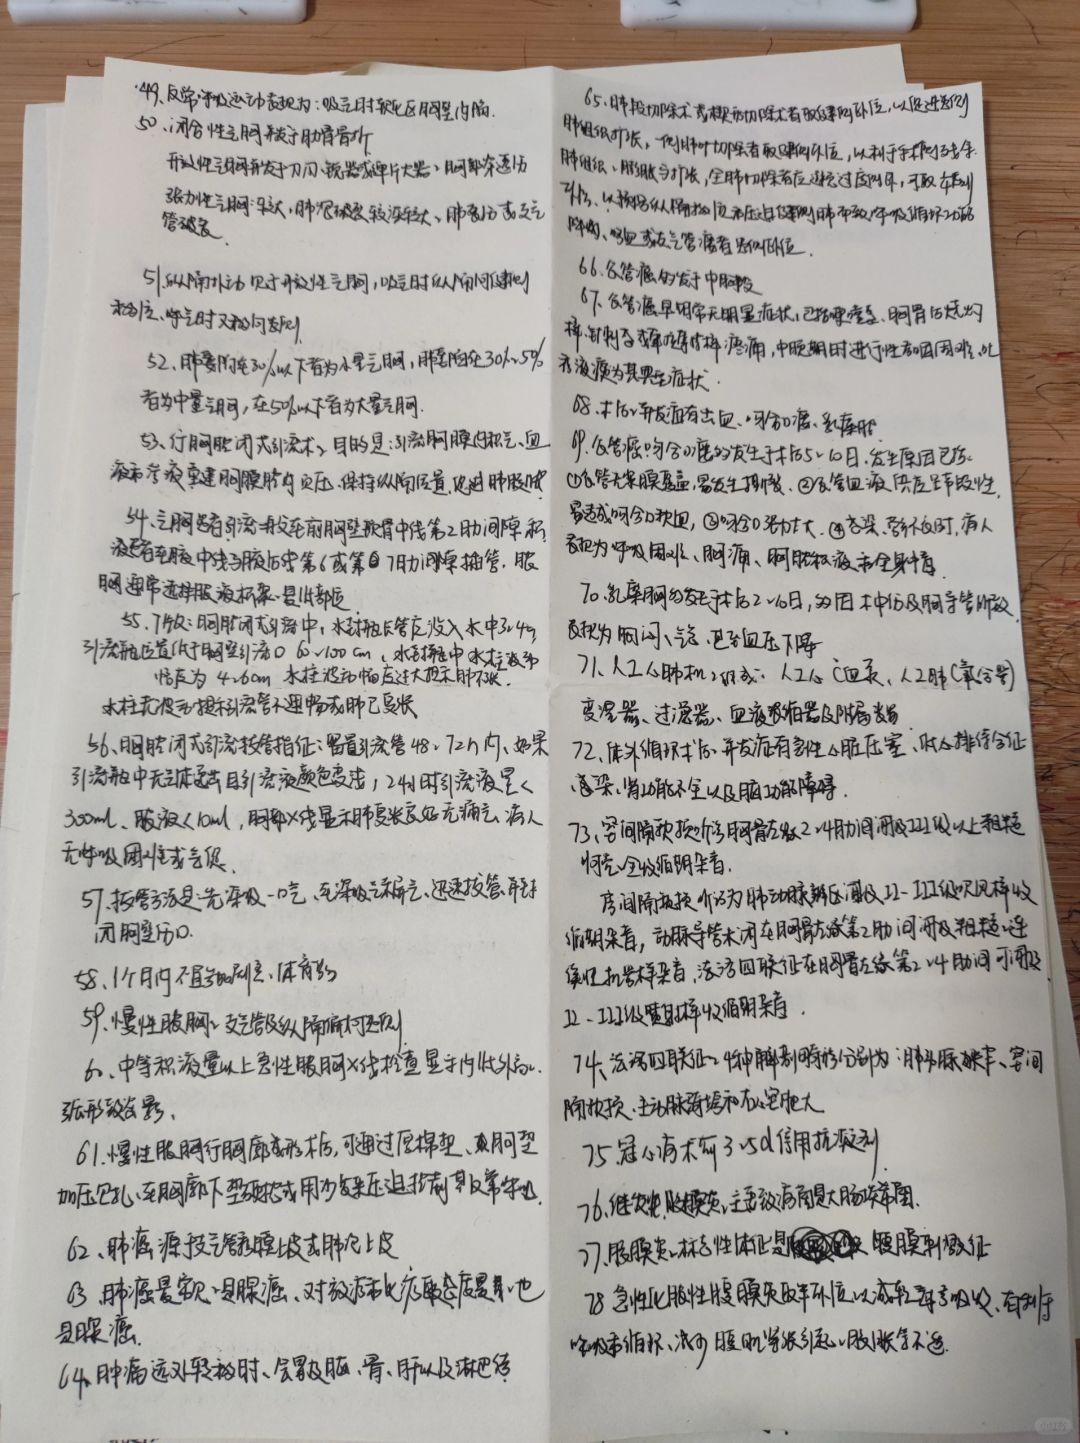 49、反常呼吸运动表现为：吸气时软化区胸壁内陷.
50、闭合性气胸并发于肋骨骨折
开放性气胸并发于刀刃、锐器或弹片火器、胸部穿透伤
张力性气胸：较大、肺泡破裂较深较大、肺裂伤或支气
管破裂
51.纵隔扑动见于开放性气胸，吸气时纵隔向健侧
移位、呼气时又移向患侧
52、肺萎陷在30%以下者为小量气胸，肺萎陷在30%~50%
者为中量气胸，在50%以下者为大量气胸.
53、行胸腔闭式引流术、目的是：引流胸膜内积气、血
液和 重建胸膜腔内负压、保持纵隔位置，促进肺膨胀
54、气胸患者引流一般在前胸壁锁骨中线第2肋间隙积
液患者在腋中线与腋后线第6或第7肋间隙插管.脓
胸通常选择脓液积聚 最低部位
55、胸腔闭式引流中，水封瓶长管应没入水中3~4cm
引流瓶位置低于胸壁引流口60~100cm，水封瓶中水柱波动
幅度为4~6cm 水柱波动幅度过大提示肺不张.
水柱无波动提示引流管不通畅或肺已复张
56、胸腔闭式引流拔管指征：留置引流管48~72h内、如果
引流瓶中无气体逸出且引流液颜色变浅，24小时引流液量<
300ml、脓液<10ml，胸部X线显示肺复张良好无漏气、病人
无呼吸困难或气促
57、拔管方法是：先深吸一口气，在深吸气末屏气、迅速拔管、并封
闭胸壁伤口.
58、1个月内不宜剧烈、体育
59、慢性脓胸：支气管及纵隔偏向患侧
60、中等积液量以上急性脓胸X线检查显示内低外高、
弧形致密影、
61.慢性脓胸行胸廓成形术后，可通过厚棉垫、胸带
加压包扎、在胸廓下垫硬枕或用沙袋压迫控制其反常呼吸.
62、肺癌源于支气管黏膜上皮或肺泡上皮
63 肺癌最常见是腺癌、对放疗和化疗敏感度最 也
是腺癌.
64、肿瘤远处转移时、会累及脑、骨、肝以及淋巴结
65、肺段切除术或楔形切除术者取健侧卧位，以促进患侧
肺组织扩张，一侧肺叶切除者取健侧卧位，以利于手术侧残余
肺组织、膨胀与扩张，全肺切除者应避免过度侧卧，可取1/4侧
卧位、以预防纵隔移位和压迫健侧肺而致呼吸循环功能
障碍、咯血或支气管瘘者患侧卧位
66、食管癌好发于中胸段
67、食管癌早期常无明显症状，包括哽噎感、胸骨后烧灼
样、针刺样或牵拉摩擦样疼痛，中晚期时进行性吞咽困难、
液为其典型症状.
68、术后并发症有出血、吻合口瘘、乳糜胸
69、食管癌吻合口瘘多发生于术后5~10日、发生原因包括：
①食管无浆膜覆盖，易发生撕裂、②食管血液供应呈节段性，
易造成吻合口缺血，③吻合口张力太大、④感染、营养不良时，病人
表现为呼吸困难、胸痛、胸腔积液和全身中毒
70、乳糜胸多发于术后2~10日，多因术中伤及胸导管所致
表现为胸闷、气急、甚至血压下降
71、人工心肺机组成：人工心（血泵、人工肺（氧合器）
变温器、过滤器、血液浓缩器及附属装置
72、体外循环术后并发症有急性心脏压塞、低心排综合征
感染、肾功能不全以及脑功能障碍.
73、室间隔缺损听诊胸骨左缘2~4肋间闻及III级以上粗糙
响亮、全收缩期杂音.
房间隔缺损听诊为肺动脉瓣区闻及II-III级吹风样收
缩期杂音，动脉导管未闭在胸骨左缘第2肋间闻及粗糙连
续性机器样杂音，法洛四联征在胸骨左缘第2~4肋间可闻及
II-III级喷射样收缩期杂音
74、法洛四联征：4种解剖畸形分别为：肺动脉狭窄、室间
隔缺损、主动脉骑跨和右心室肥大
75 冠心病术前3~5d停用抗凝剂
76、继发性腹膜炎、主要致病菌是大肠埃希菌.
77、腹膜炎：标志性体征是 腹膜刺激征
78 急性化脓性腹膜炎取半卧位以减轻毒素吸收、有利于
呼吸和循环、减少腹肌紧张引起 腹胀等不适